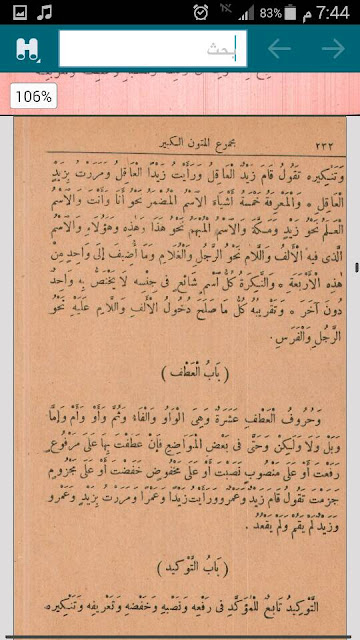 83% 7:44 م
بحث
106%
مجموع المتون الكبير ٢٣٢
وَتَنْكِيرِهِ تَقُولُ قَامَ زَيْدٌ الْعَاقِلُ وَرَأَيْتُ زَيْدًا الْعَاقِلَ وَمَرَرْتُ بِزَيْدٍ
الْعَاقِلِ ه وَالْمَعْرِفَةُ خَمْسَةُ أَشْيَاءَ الِاسْمُ الْمُضْمَرُ نَحْوُ أَنَا وَأَنْتَ وَالِاسْمُ
الْعَلَمُ نَحْوُ زَيْدٍ وَمَكَّةَ وَالِاسْمُ الْمُبْهَمُ نَحْوُ هَذَا وَهَذِهِ وَهَؤُلَاءِ وَالِاسْمُ
الَّذِى فِيهِ الْأَلِفُ وَاللَّامُ نَحْوُ الرَّجُلُ وَالْغُلَامُ وَمَا أُضِيفَ إِلَى وَاحِدٍ مِنْ
هَذِهِ الْأَرْبَعَةِ ه وَالنَّكِرَةُ كُلُّ اسْمٍ شَائِعٍ فِى جِنْسِهِ لَا يَخْتَصُّ بِهِ وَاحِدٌ
دُونَ آخَرَ ه وَتَقْرِيبُهُ كُلُّ مَا صَلَحَ دُخُولُ الْأَلِفِ وَاللَّامِ عَلَيْهِ نَحْوُ
الرَّجُلِ وَالْفَرَسِ .
( بَابُ الْعَطْفِ )
وَحُرُوفُ الْعَطْفِ عَشَرَةٌ وَهِىَ الْوَاوُ وَالْفَاءُ وَثُمَّ وَأَوْ وَأَمْ وَإِمَّا
وَبَلْ وَلَا وَلَكِنْ وَحَتَّى فِى بَعْضِ الْمَوَاضِعِ فَإِنْ عَطَفْتَ بِهَا عَلَى مَرْفُوعٍ
رَفَعْتَ أَوْ عَلَى مَنْصُوبٍ نَصَبْتَ أَوْ عَلَى مَخْفُوضٍ خَفَضْتَ أَوْ عَلَى مَجْزُومٍ
جَزَمْتَ تَقُولُ قَامَ زَيْدٌ وَعَمْرٌو وَرَأَيْتُ زَيْدًا وَعَمْرًا وَمَرَرْتُ بِزَيْدٍ وَعَمْرٍو
وَزَيْدٌ لَمْ يَقُمْ وَلَمْ يَقْعُدْ .
( بَابُ التَّوْكِيدِ )
التَّوْكِيدُ تَابِعٌ لِلْمُؤَكَّدِ فِى رَفْعِهِ وَنَصْبِهِ وَخَفْضِهِ وَتَعْرِيفِهِ وَتَنْكِيرِهِ